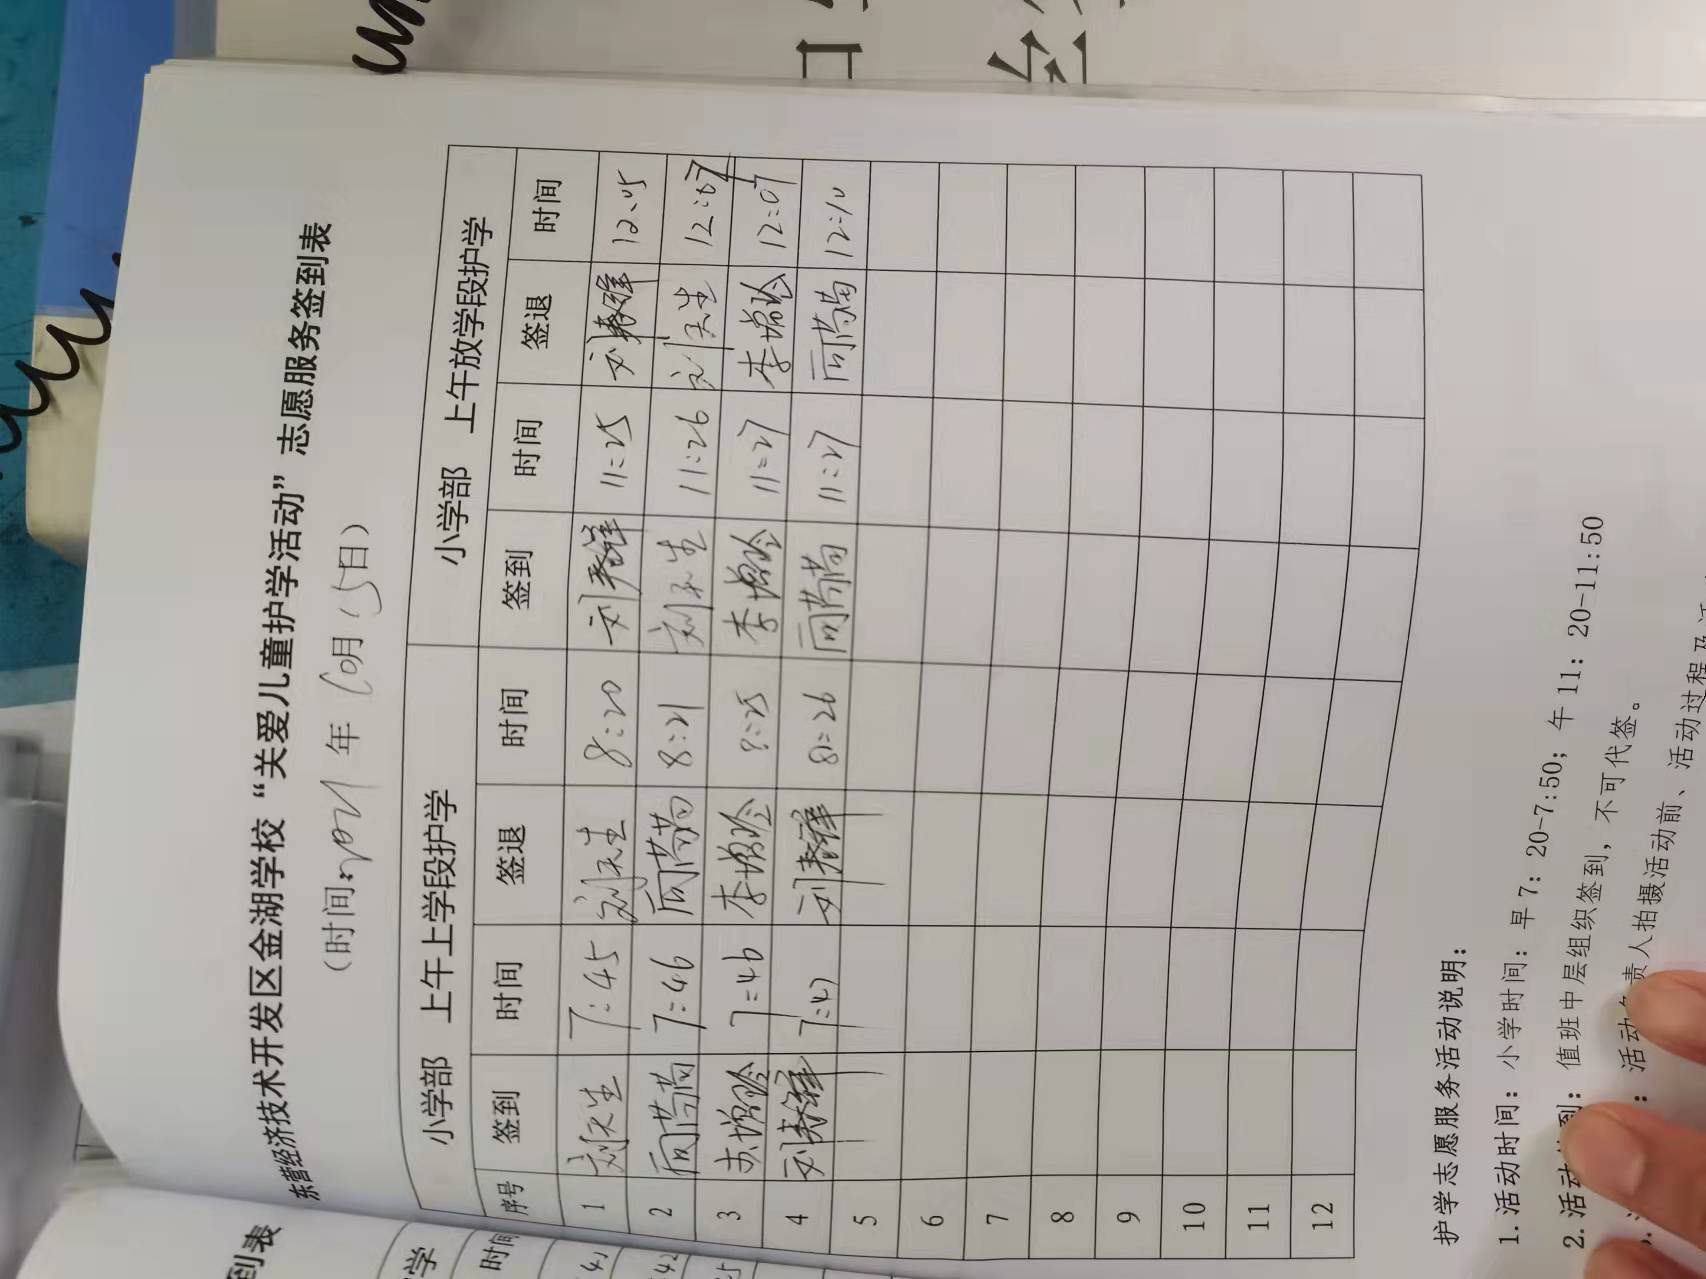 东营经济技术开发区金湖学校“关爱儿童护学活动”志愿服务签到表
（时间：2021年10月15日）
小学部 上午上学段护学 小学部 上午放学段护学
序号 签到 时间 签退 时间 签到 时间 签退 时间
1 刘天生 7:45 刘天生 8:20 11:25 12:05
2 7:46 8:21 刘天生 11:26 刘天生 12:07
3 7:46 李增玲 8:25 李增玲 11:27 李增玲 12:07
4 7:47 8:26 11:27 12:10
5
6
7
8
9
10
11
12
护学志愿服务活动说明：
1.活动时间：小学时间：早7：20-7:50；午11：20-11:50
2.活动 到：值班中层组织签到，不可代签。
活动 责人拍摄活动前、活动过程及
到表
学
时间